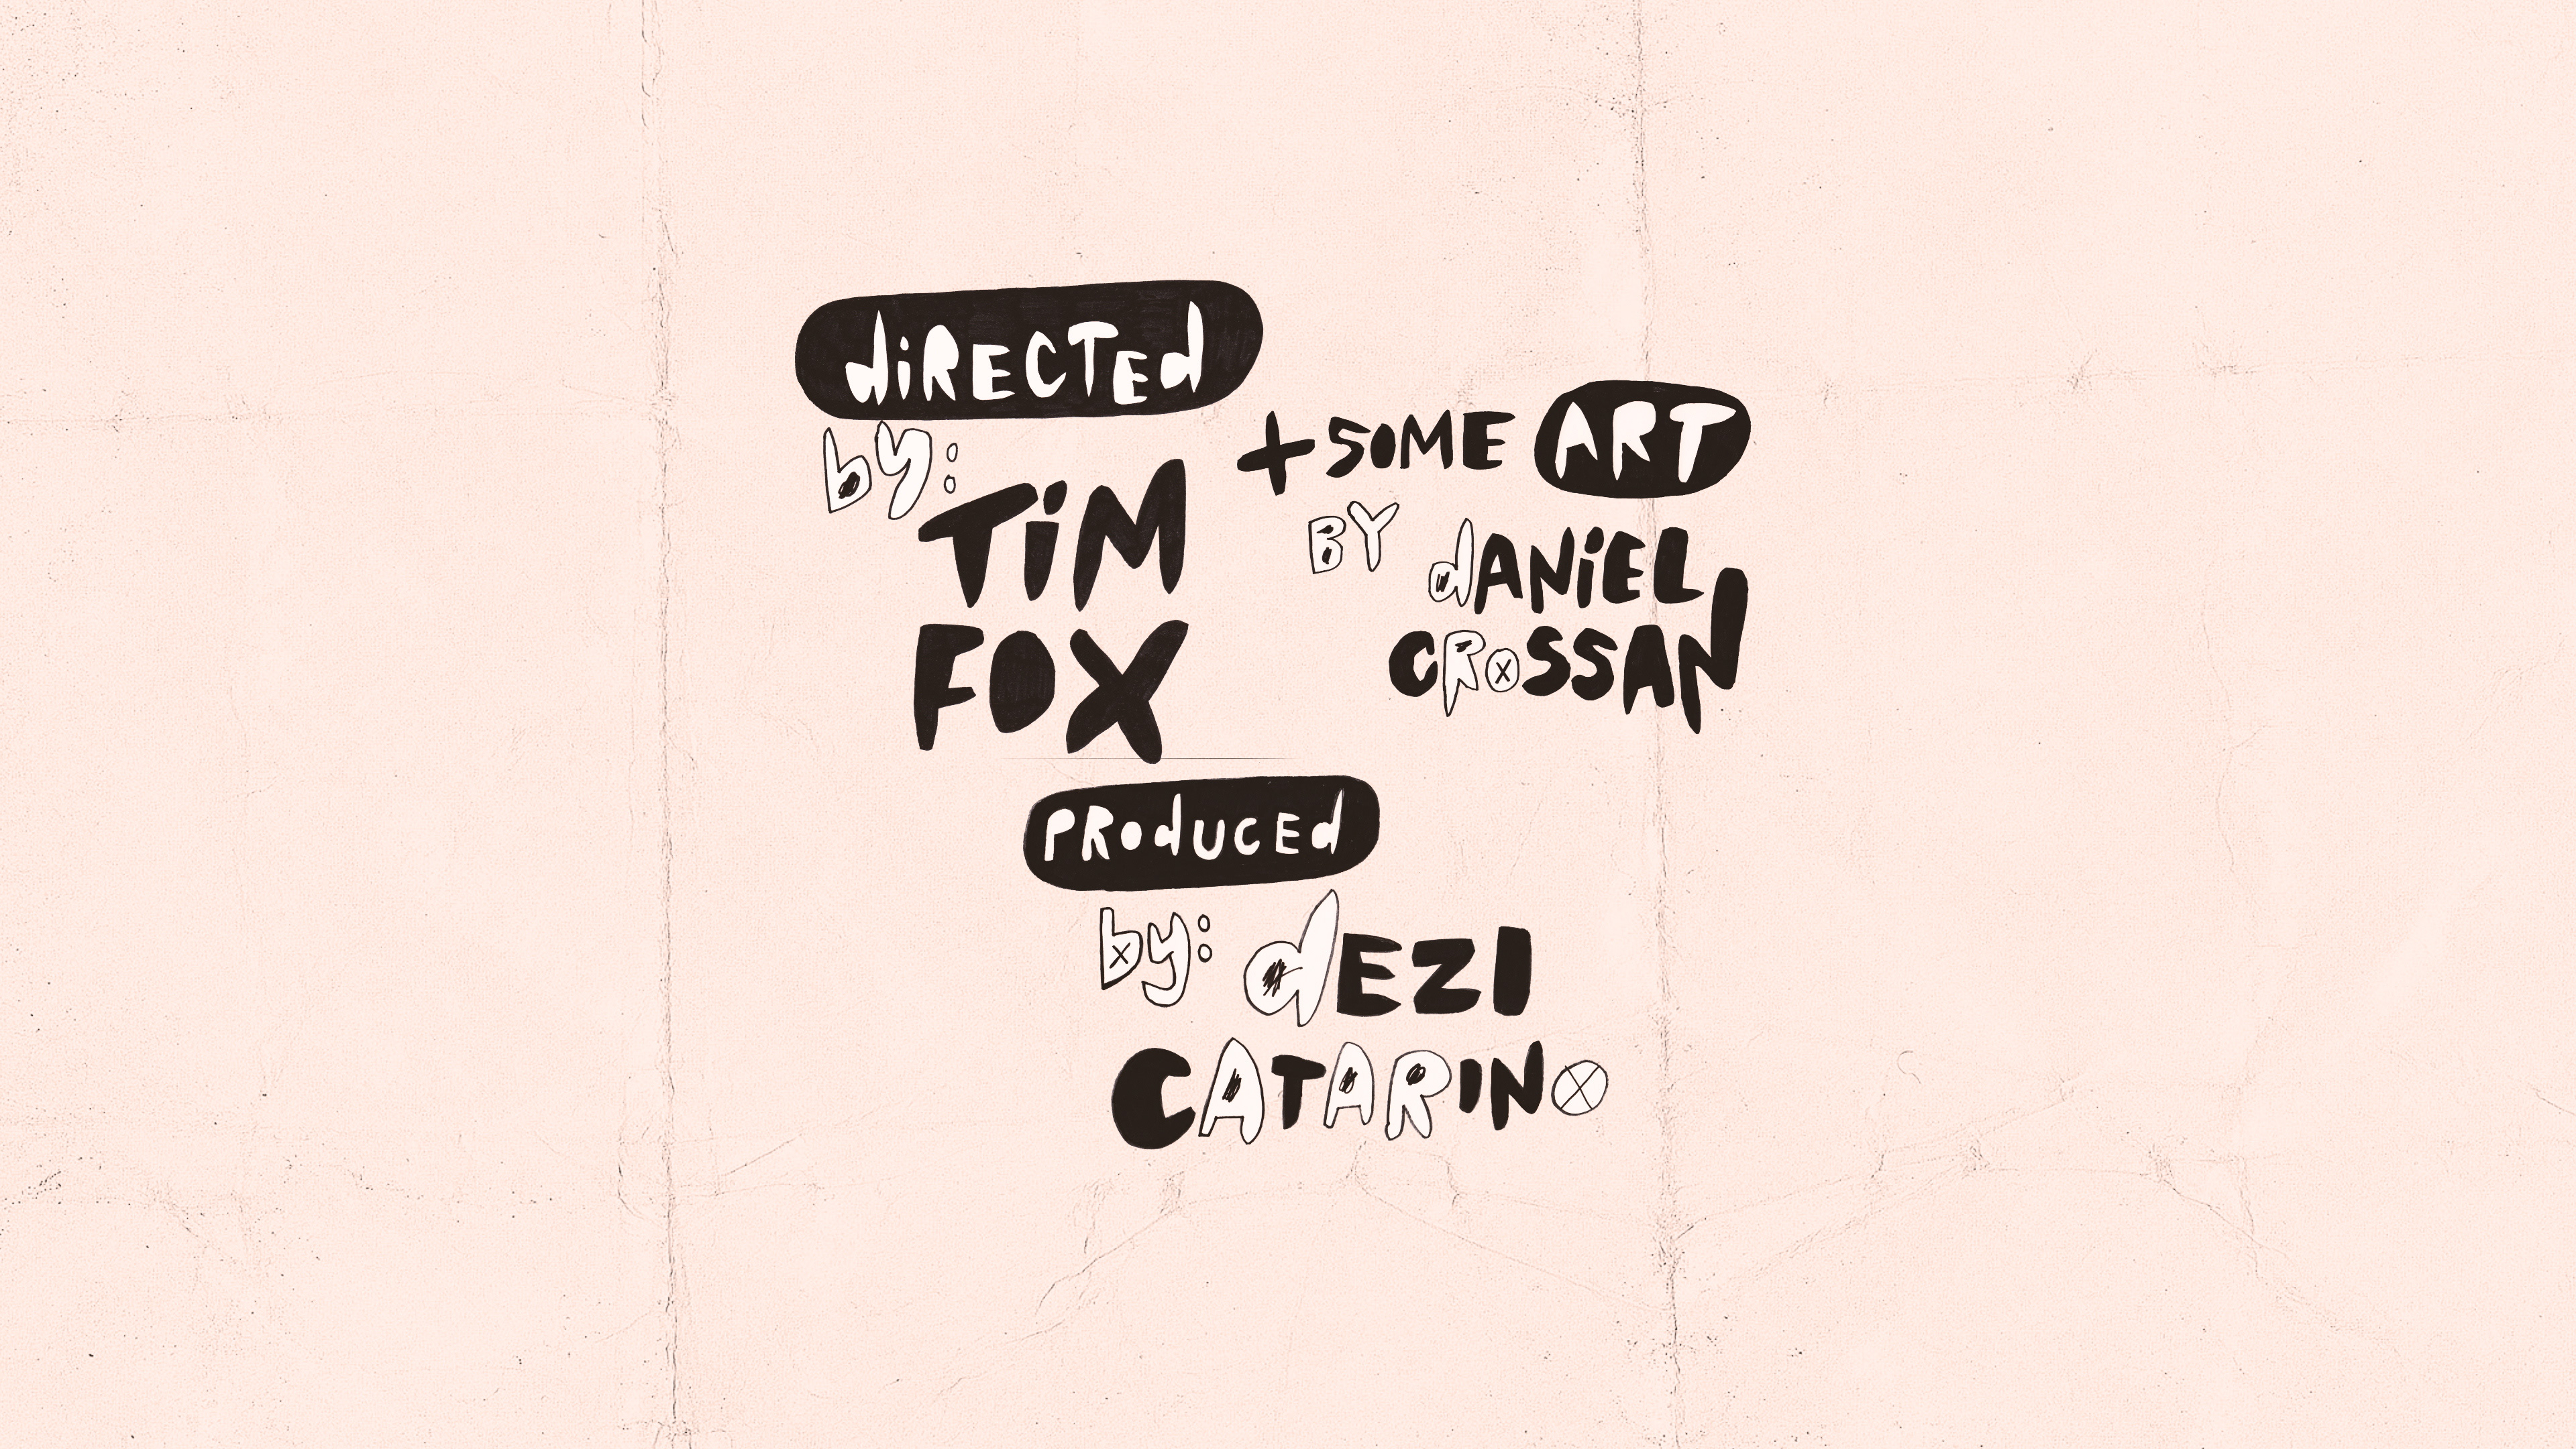 diRECTEd
by:
TiM
FOX
+ SOME ART
BY dANiEL
CROSSAN
PROdUCEd
by: dEZI
CATARINO